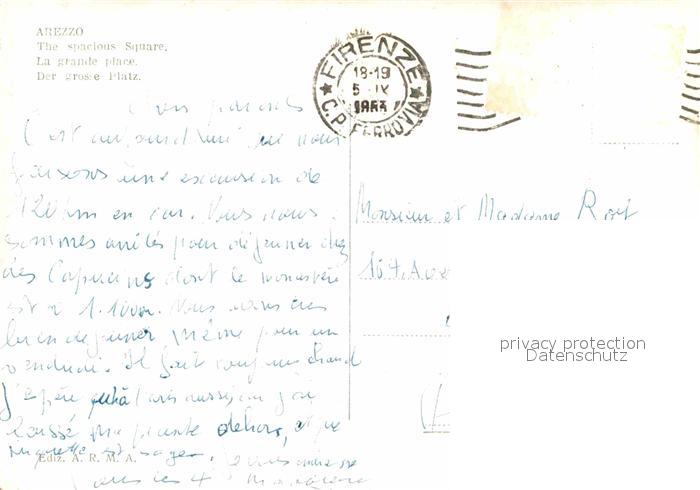 AREZZO
The spacious Square.
La grande place.
Der grosse Platz.
FIRENZE
18-19
5 IX
1953
C.P. FERROVIA
parents
C'est aujourd'hui que nous
faisons une excursion de
120 km en car. Nous nous
sommes arrêtés pour déjeuner chez
des Capucins dont le monastère
est à 1.100m. Nous avons très
bien déjeuner, même pour un
vendredi. Il fait toujours chaud
j'espère qu'à Paris aussi, car j'ai
laissé ma plante dehors, et que
est sage. Je vous embrasse
tous les 4
Monsieur et Madame
167. Ave
privacy protection
Datenschutz
Ediz. A. R. M. A.